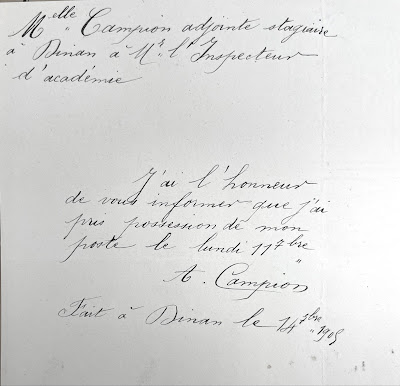 Melle Campion adjointe stagiaire
à Dinan à Mr l'Inspecteur
d'académie
J'ai l'honneur
de vous informer que j'ai
pris possession de mon
poste le lundi 11 7bre
A. Campion
Fait à Dinan le 14 7bre 1905